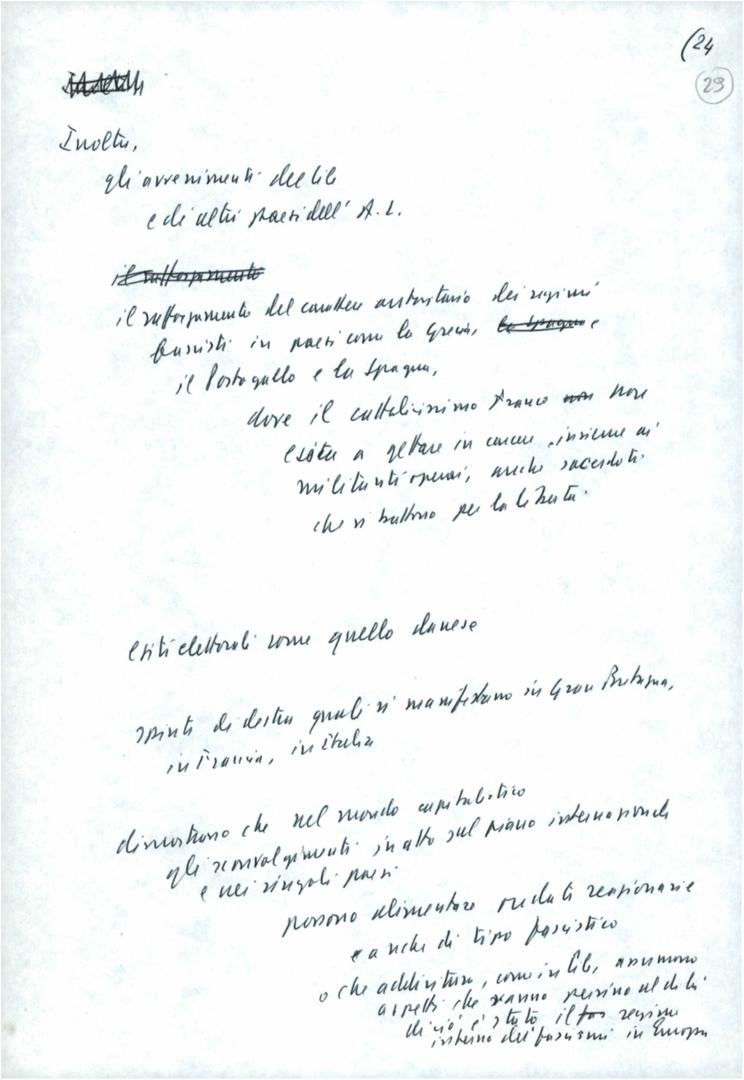 (24
29
Inoltre,
gli avvenimenti del Cile
e di altri paesi dell' A. L.
il rafforzamento
il rafforzamento del carattere autoritario dei regimi
fascisti in paesi come la Grecia, la Spagna e
il Portogallo e la Spagna,
dove il cattolicissimo Franco non non
esita a gettare in carcere, insieme ai
militanti operai, anche sacerdoti
che si battono per la libertà.
esiti elettorali come quello danese
spinte di destra quali si manifestano in Gran Bretagna,
in Francia, in Italia
dimostrano che nel mondo capitalistico
gli sconvolgimenti in atto sul piano internazionale
e nei singoli paesi
possono alimentare ondate reazionarie
e anche di tipo fascistico
o che addirittura, come in Cile, assumono
aspetti che vanno persino al di là
di ciò è stato il regime
interno dei fascismi in Europa